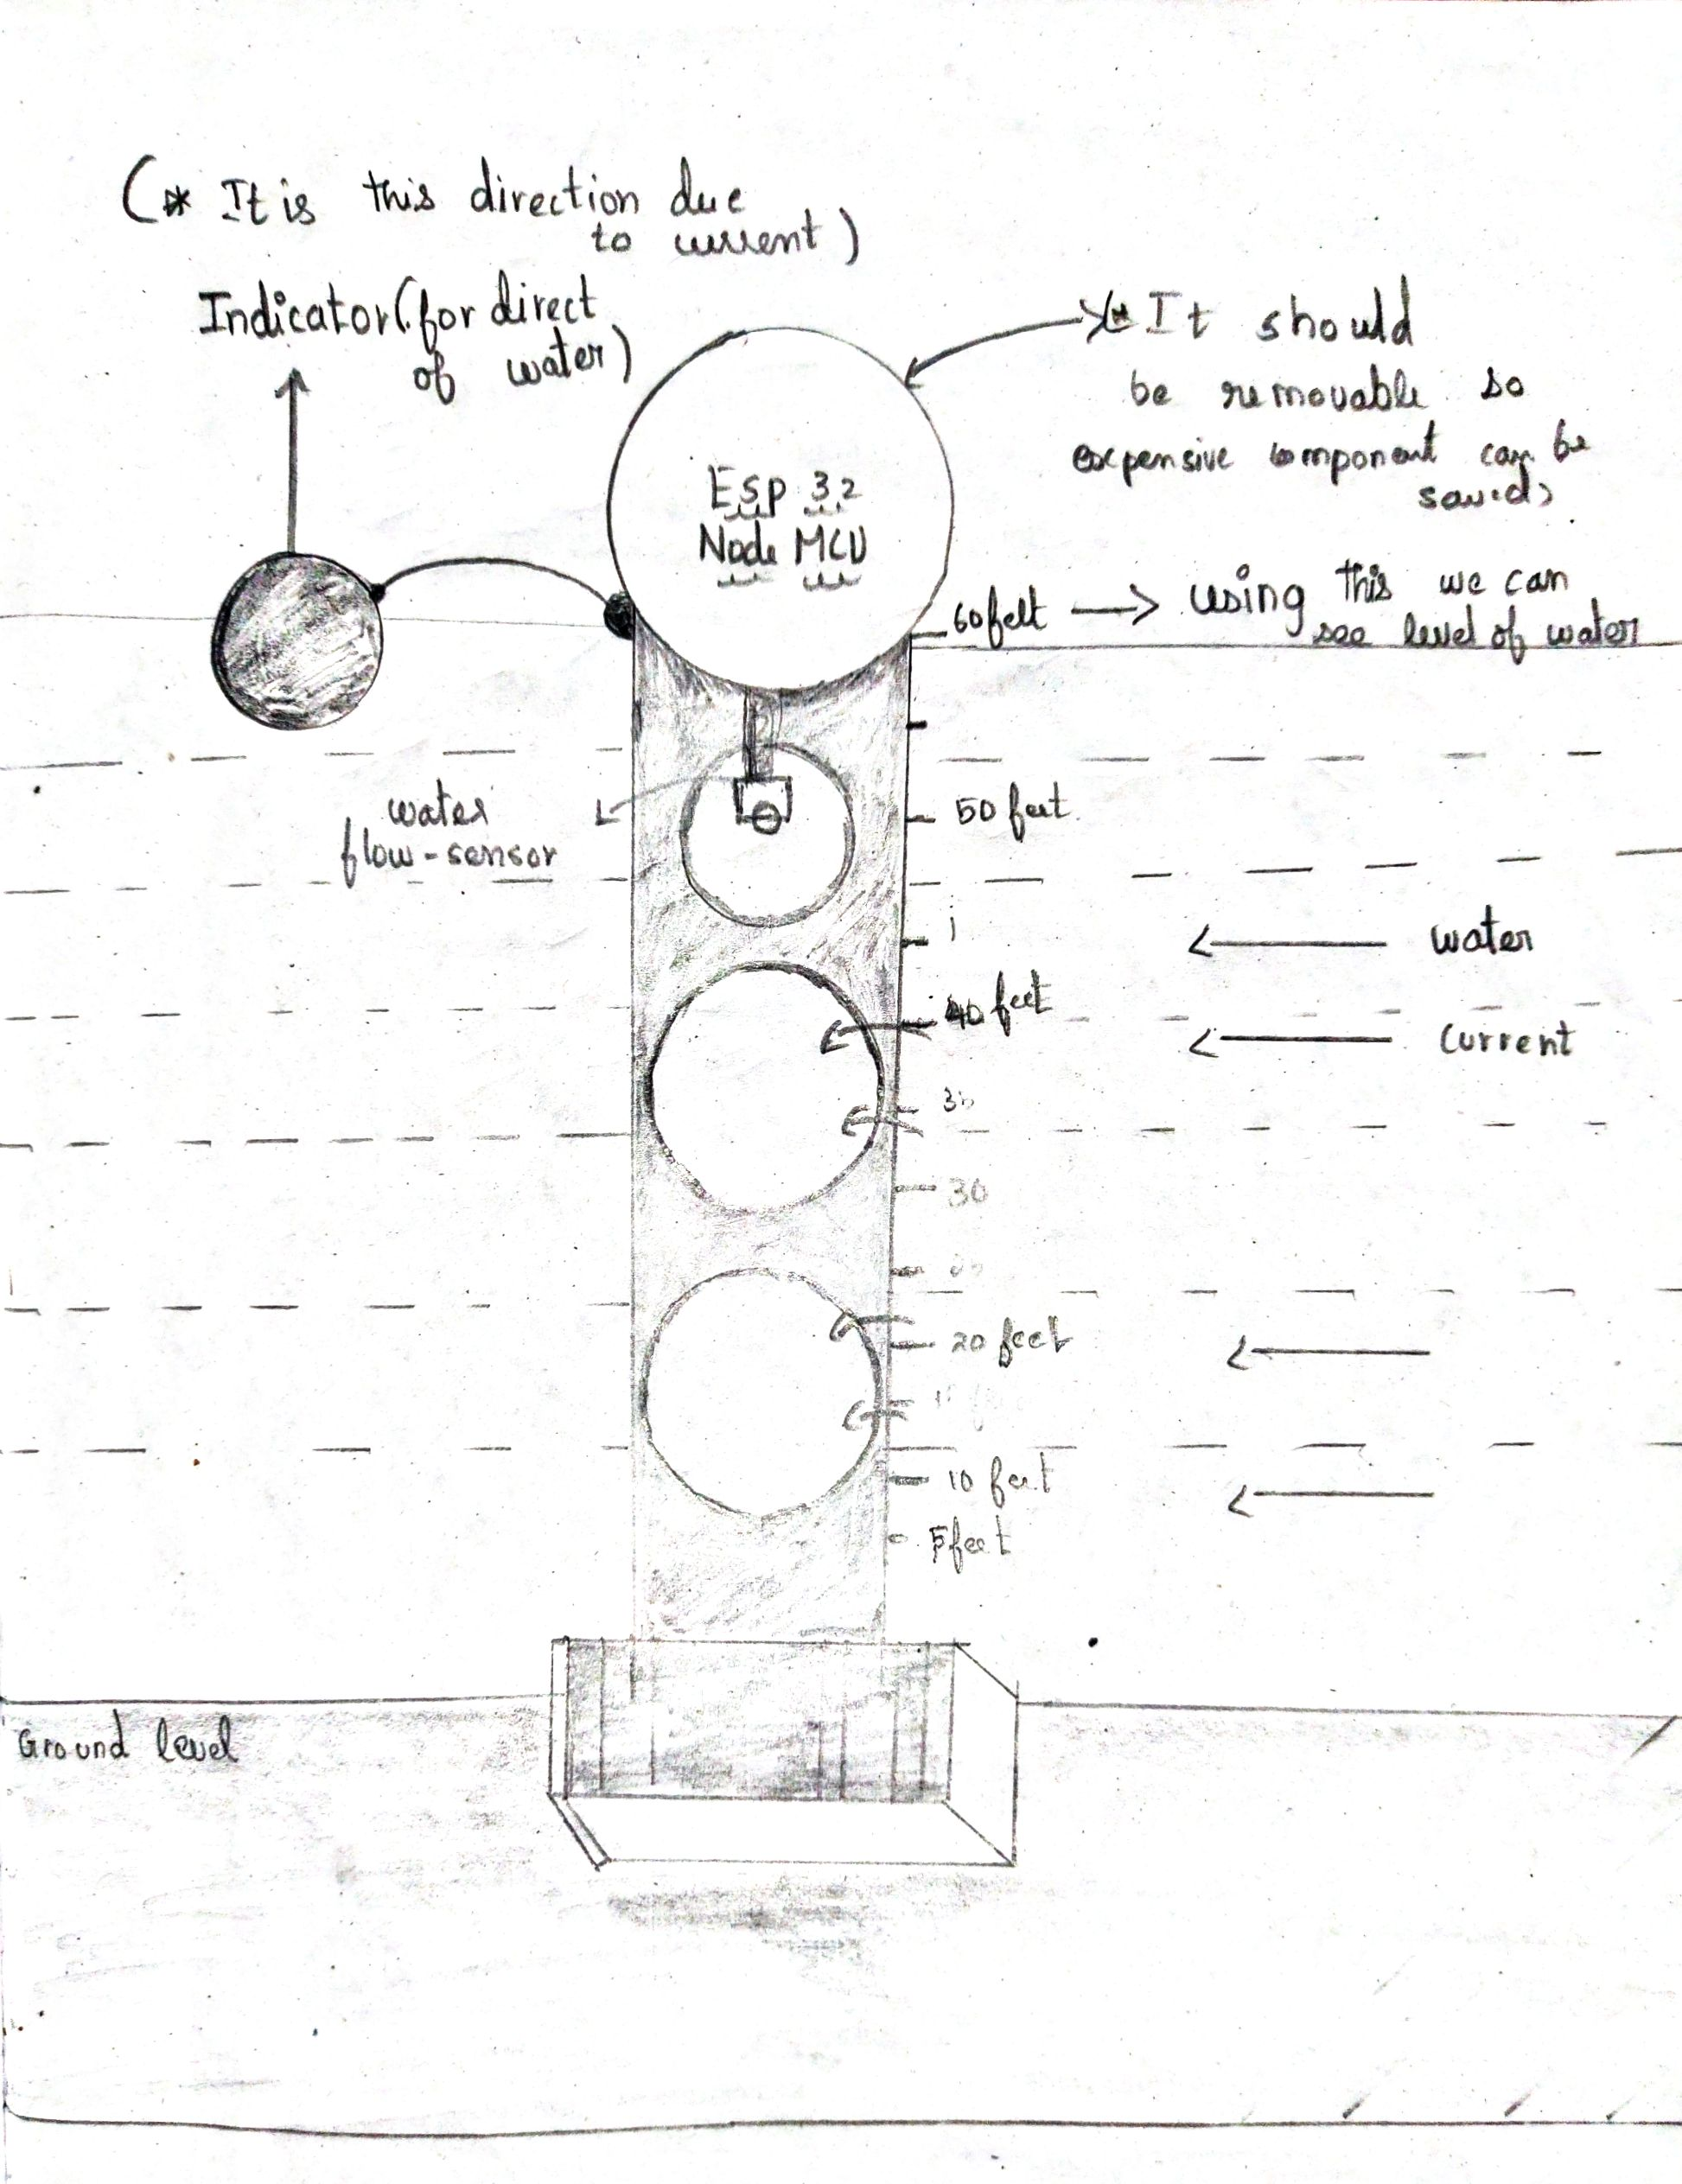 (* It is this direction due
to current)
Indicator (for direct
of water)
* It should
be removable so
expensive component can be
saved
Esp 32
Node MCU
60 feet → using this we can
see level of water
water
flow-sensor
50 feet
water
40 feet
current
30
20 feet
10 feet
5 feet
Ground level